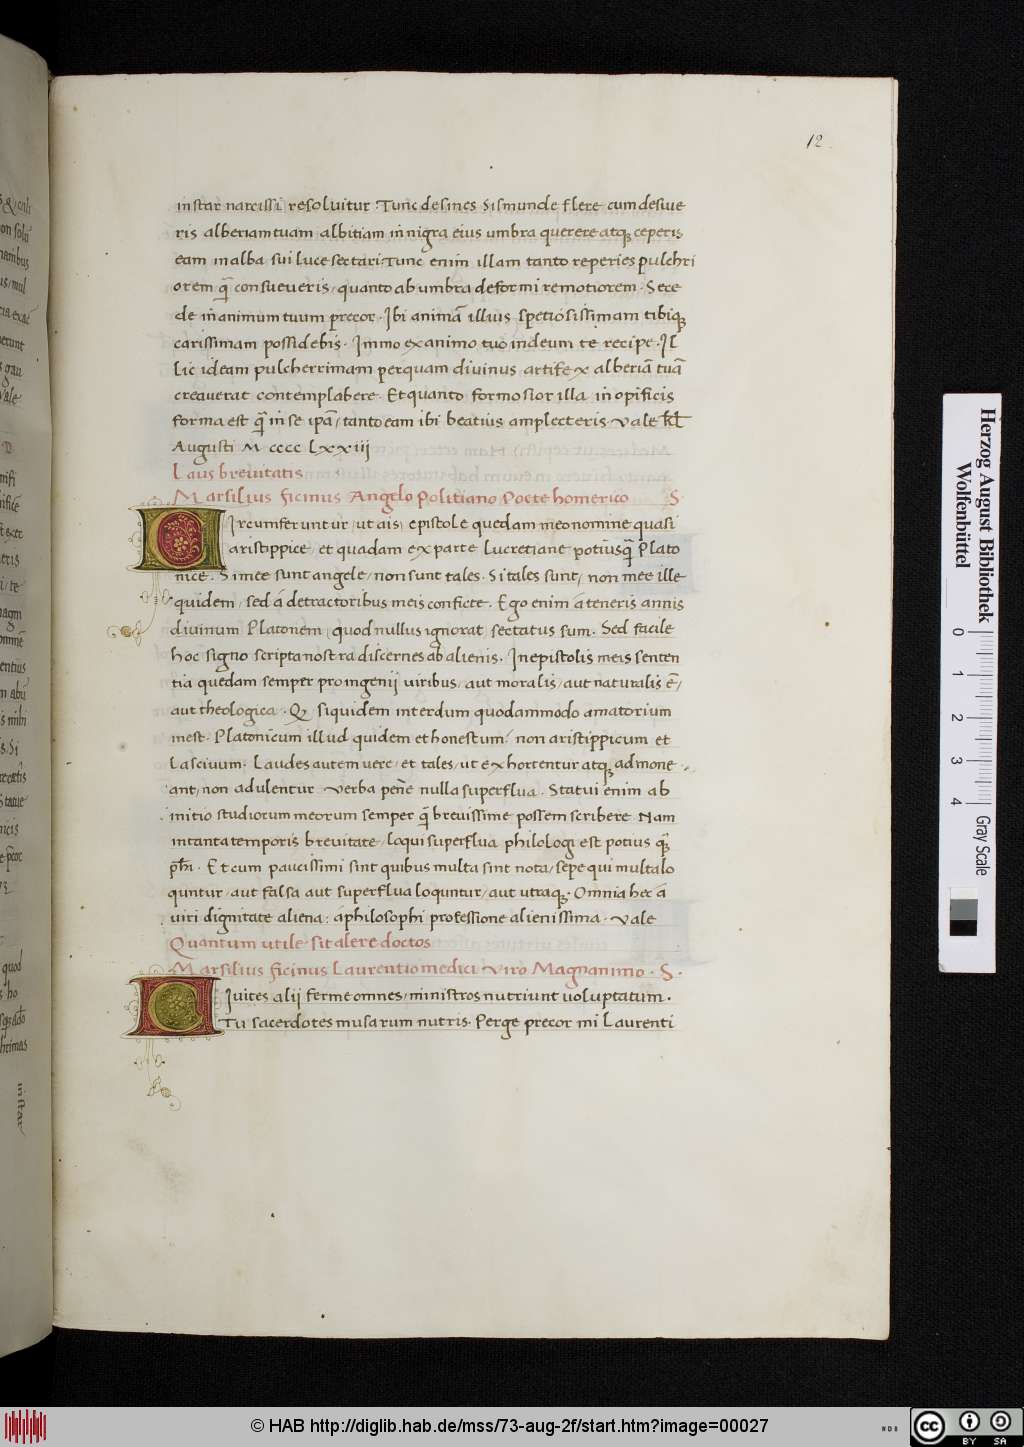 12
instar narcissi resoluitur. Tunc desines Sismunde flere cum desiue
ris alberiam tuam albitiam in nigra eius umbra querere atq; ceperis
eam in alba sui luce sectari. Tunc enim illam tanto reperies pulchri
orem q̃ consueueris, quanto ab umbra deformi remotiorem. Sece
de in animum tuum precor. Ibi animã illius spetiosissimam tibiq;
carissimam possidebis. Immo ex animo tuo in deum te recipe. Il
lic ideam pulcherrimam per quam diuinus artifex alberiã tuã
creauerat contemplabere. Et quanto formosior illa in opificis
forma est q̃ in se ip̃a, tanto eam ibi beatius amplecteris. Vale kl̃
Augusti M cccc Lxxiii
Laus breuitatis
Marsilius ficinus Angelo Politiano Poete homerico S.
Circumferuntur, ut ais, epistole quedam meo nomine quasi
aristippice, et quadam ex parte lucretiane potius q̃ Plato
nice. Si mee sunt angele, non sunt tales. Si tales sunt, non mee ille
quidem, sed á detractoribus meis conficte. Ego enim á teneris annis
diuinum Platonem, quod nullus ignorat, sectatus sum. Sed facile
hoc signo scripta nostra discernes ab alienis. In epistolis meis senten
tia quedam semper pro ingenii uiribus, aut moralis, aut naturalis ẽ,
aut theologica. Q siquidem interdum quodammodo amatorium
inest. Platonicum illud quidem et honestum: non aristippicum et
lasciuum. Laudes autem uere, et tales, ut exhortentur atq; admone
ant, non adulentur. Verba pene nulla superflua. Statui enim ab
initio studiorum meorum semper q̃ breuissime possem scribere. Nam
in tanta temporis breuitate, loqui superflua philologi est potius q̃
ph̃i. Et cum paucissimi sint quibus multa sint nota, sepe qui multa lo
quntur, aut falsa aut superflua loquntur, aut utraq;. Omnia hec á
uiri dignitate aliena: á philosophi professione alienissima. Vale
Quantum utile sit alere doctos
Marsilius ficinus Laurentio medici Viro Magnanimo. S.
Diuites alii ferme omnes, ministros nutriunt uoluptatum.
Tu sacerdotes musarum nutris. Perge precor mi Laurenti
Herzog August Bibliothek
Wolfenbüttel
0 1 2 3 4
Gray Scale
© HAB http://diglib.hab.de/mss/73-aug-2f/start.htm?image=00027
WDB
cc BY SA